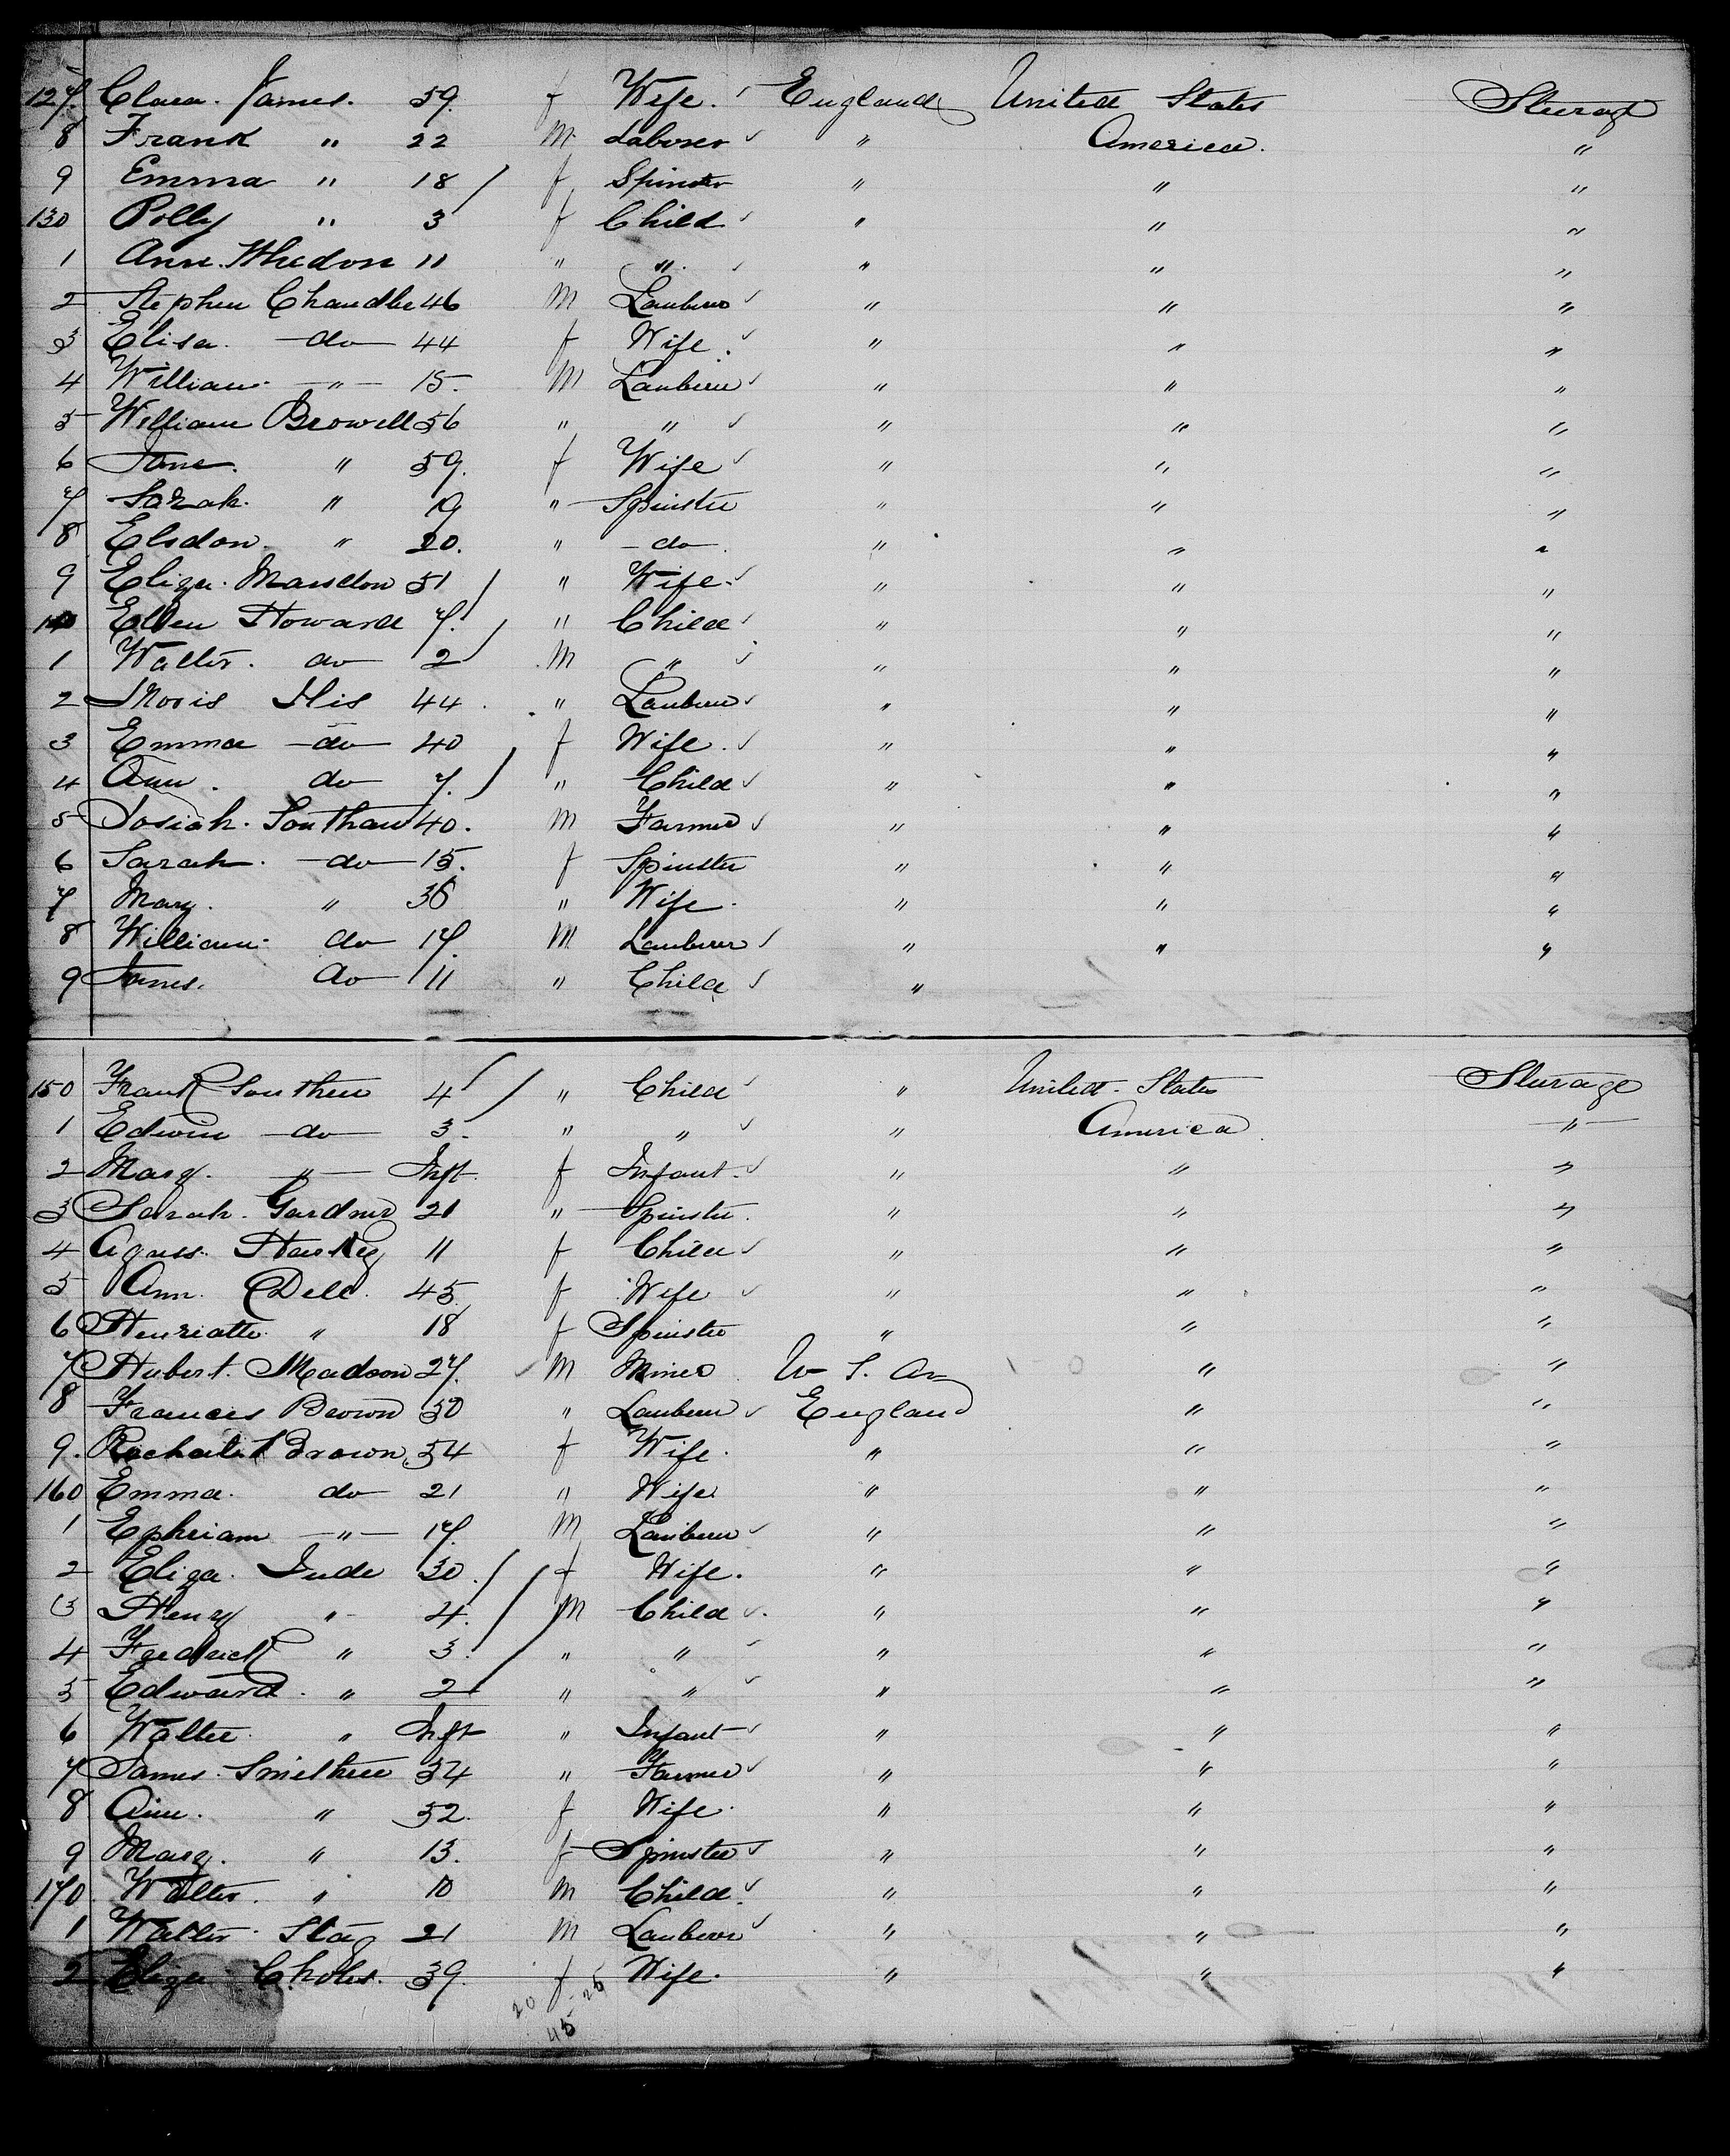 127. Clara. James. 59. f Wife. England United States Steerage
8 Frank " 22 M Laborer " America. "
9 Emma " 18 f Spinster " " "
130 Polly " 3 f Child " " "
1 Ann. Whedon 11 " " " " "
2 Stephen Chandler 46 M Lauberer " " "
3 Elisa. do 44 f Wife. " " "
4 William. " 15. M Lauberer " " "
5 William Browell 56 " " " " "
6 Jane. " 59. f Wife " " "
7 Sarah. " 19 " Spinster " " "
8 Elsdon. " 20. " do " " "
9 Eliza. 51 " Wife. " " "
140 Ellen Howard 7. " Child " " "
1 Walter. do 2 M " " " "
2 44. " Lauberer " " "
3 Emma do 40 f Wife. " " "
4 Ann. do 7. " Child " " "
5 Josiah. Southan 40. M Farmer " " "
6 Sarah. do 15. f Spinster " " "
7 Mary. " 36 " Wife. " " "
8 William. do 17. M Lauberer " " "
9 James. do 11 " Child "
150 Frank Southen 4 " Child " United States Sturage
1 Edwin do 3. " " " America. "
2 Mary. " Inft. f Infant. " " "
3 Sarah. Gardner 21 " Spinster. " " "
4 Agness. 11 f Child " " "
5 Ann. Dell. 45 f Wife " " "
6 Henriatte " 18 f Spinster " " "
7 Hubert. Madson 27. M Miner U. S. Am " "
8 Francis Brown 50 " Lauberer England " "
9. Brown. 54 f Wife. " " "
160 Emma. do 21 " Wife " " "
1 Ephriam " 17. M Lauberer " " "
2 Eliza. Jude 30. f Wife. " " "
3 Henry " 4. M Child. " " "
4 Fredrick " 3. " " " " "
5 Edward. " 2 " " " " "
6 Walter. " Inft " Infant " " "
7 James. Smithen 34 " Farmer " " "
8 Ann. " 32. f Wife. " " "
9 Mary. " 13. f Spinster " " "
170. Walter. " 10 M Child. " " "
1 Walter. Stag 21 M Lauberer " " "
2 Eliza 39. f Wife. " " "
20 25
45